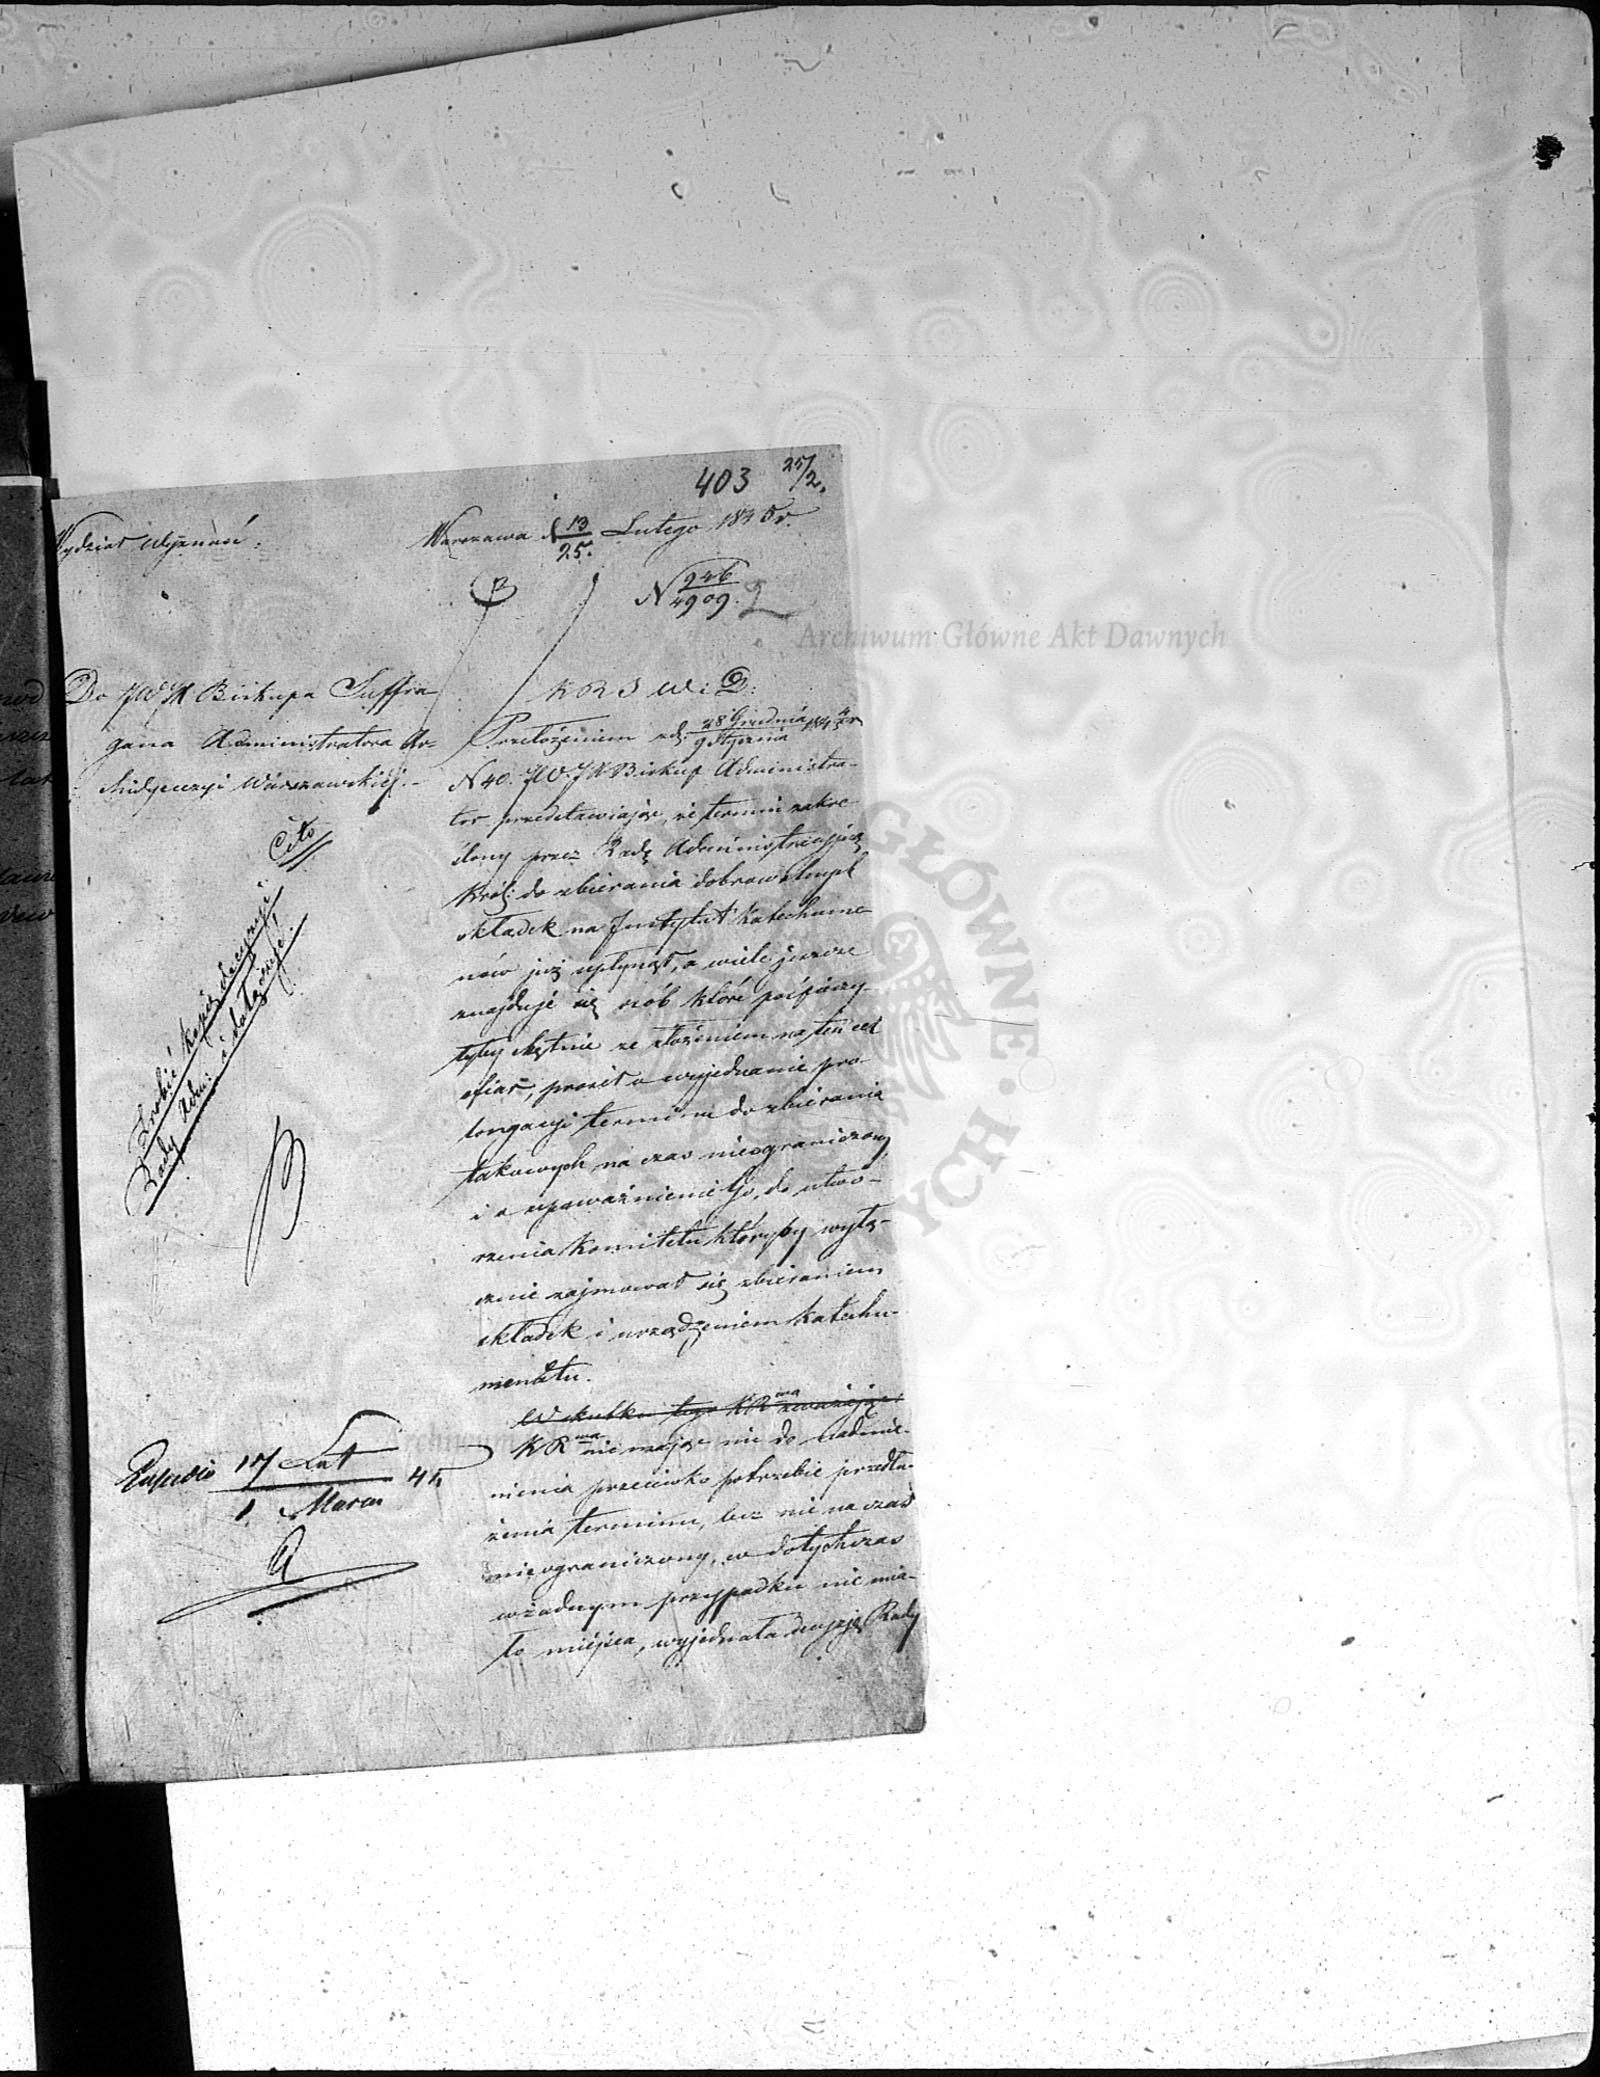 403 25/2.
Wydział Wyznań.
Warszawa d 13/25. Lutego 1845 r.
N 246/4909. 2
Archiwum Główne Akt Dawnych
Do JWJX Biskupa Suffra
gana Administratora Ar=
chidyecezyi Warszawskiéj.-
Cito
Zrobić kopię decyzyi
Rady Adm: i dołączyć!
K R S W i D:
Przełożeniem z d. 28 Grudnia/9 Stycznia 184 4/5 r
N 40. JW.JX Biskup Administra-
tor przedstawiając, że termin zakre
ślony przez Radę Administracyjną
Król: do zbierania dobrowolnych
składek na Instytut Katechume-
nów już upłynął, a wiele jeszcze
znajduje się osób które pośpieszy-
łyby chętnie ze złożeniem na ten cel
ofiar, prosił o wyjednanie pro-
longacyi terminu do zbierania
takowych na czas nieograniczony
i o upoważnienie Go, do utwo-
rzenia Komitetu któryby wyłą-
cznie zajmował się zbieraniem
składek i urządzeniem Katechu-
menatu.
W skutku tego KRssya zważając
KR nie mając nic do nadmie-
nienia przeciwko potrzebie przedłu-
żenia terminu, lecz nie na czas
nieograniczony, co dotychczas
w żadnym przypadku nie mia-
ło miejsca, wyjednała decyzję Rady
17 Lut/1 Marca 45
GŁÓWNE